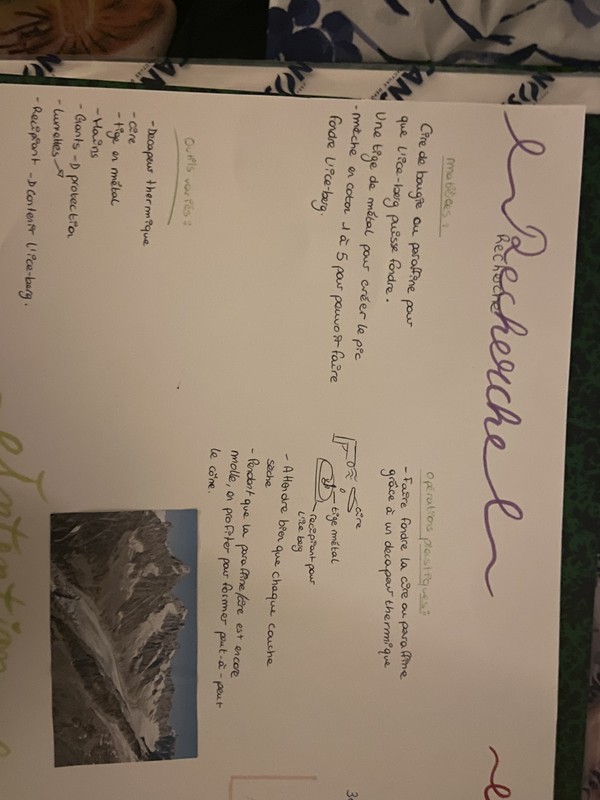 Recherche
Recherche
matières :
Cire de bougie ou paraffine pour
que l'ice-berg puisse fondre.
Une tige de métal pour créer le pic
- mèche en coton 1 à 5 pour pouvoir faire
fondre l'ice-berg.
Outils variés :
- Décapeur thermique
- cire
- tige en métal
- Mains
- Gants → protection
- Lunettes
- Récipient → contenir l'ice-berg.
Opérations plastiques :
- Faire fondre la cire ou paraffine
grâce à un decapeur thermique
cire
tige métal
recipient pour
l'ice berg
- Attendre bien que chaque couche
sèche
- Pendant que la paraffine/cire est encore
molle, en profiter pour former peut-à-peut
le cône.